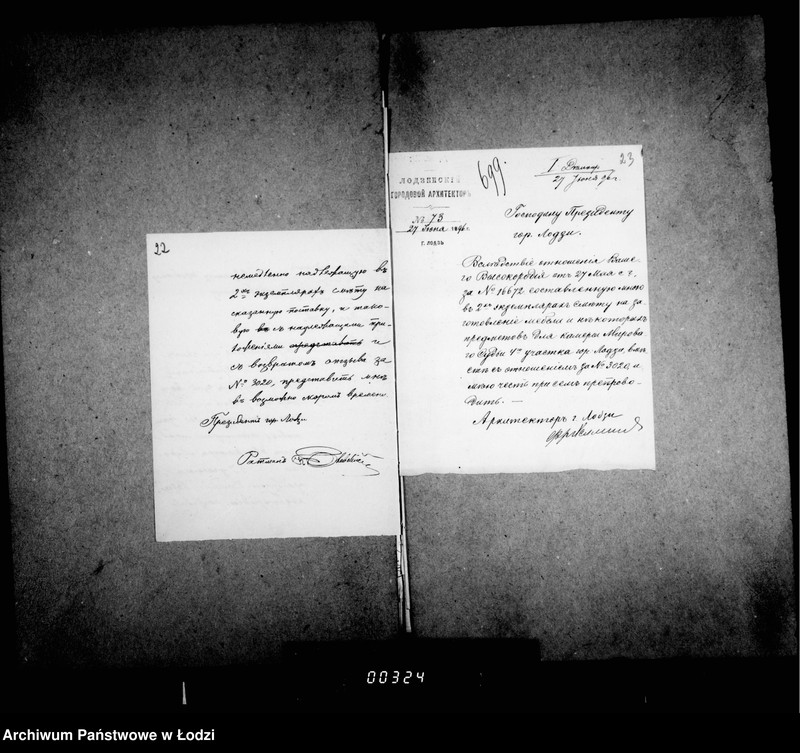 22
немедленно надлежащую въ
2ухъ экземплярахъ смѣту на
сказанную поставку, и тако-
вую съ надлежащими при-
ложеніями представить и
съ возвратомъ отзыва за
№ 3020, представить мнѣ
въ возможно скоромъ времени.
Президентъ гор. Лодзи
Ратманъ
23
699.
I
27 Іюня 96 г.
ЛОДЗИНСКІЙ
ГОРОДОВОЙ АРХИТЕКТОРЪ
№ 73
27 Іюня 1896 г.
г. ЛОДЗЬ
Господину Президенту
гор. Лодзи.
Вслѣдствіе отношенія Ваше-
го Высокородія отъ 27 Мая с. г.
за № 16672 составленную мною
въ 2ухъ экземплярахъ смѣту на за-
готовленіе мебели и нѣкоторыхъ
предметовъ для камеры Мирова-
го Судьи 4го участка гор. Лодзи, вмѣ-
стѣ съ отношеніемъ за № 3020, и
мѣю честь при семъ препрово-
дить. —
Архитекторъ г. Лодзи
00324
Archiwum Państwowe w Łodzi